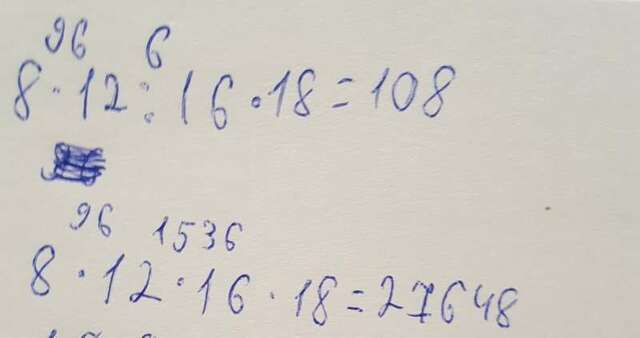 96 6
8 · 12 : 16 · 18 = 108
96 1536
8 · 12 · 16 · 18 = 27648